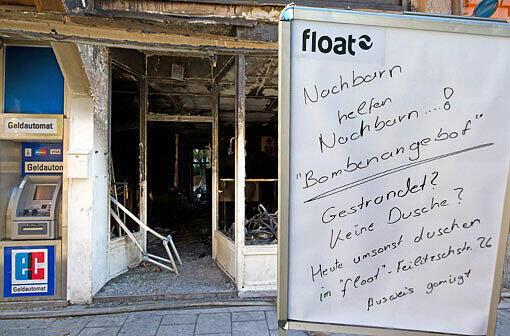 Geldautomat
VISA
Geldautomat
ec
Geldautomat
float
Nachbarn
helfen
Nachbarn....!
"Bombenangebot"
Gestrandet?
Keine Dusche?
Heute umsonst duschen
im "float" - Feilitzschstr. 26
Ausweis genügt